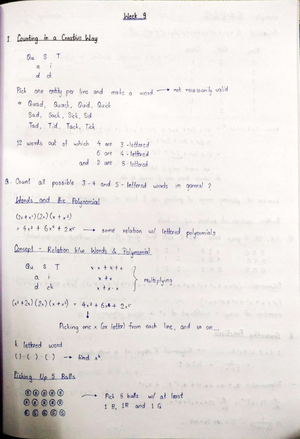 Week 9
1. Counting in a Creative Way
Qu S T
a i
d ck
Pick one entity per line and make a word → not necessarily valid
Quad, Quack, Quid, Quick
Sad, Sack, Sick, Sid
Tad, Tid, Tack, Tick
12 words out of which 4 are 3-lettered
6 are 4-lettered
and 2 are 5-lettered
Q. Count all possible 3-4 and 5-lettered words in general?
Words and the Polynomial
= 4x³ + 6x⁴ + 2x⁵ → some relation w/ lettered polynomials
Concept - Relation b/w Words & Polynomial
Qu S T
a i
d ck
multiplying
(x²+2x) (2x) (x+x²) = 4x³ + 6x⁴ + 2x⁵
Picking one x (or letter) from each line, and so on...
k lettered word
( ) · ( ) · ( ) → find xᵏ
Picking Up 5 Balls
Pick 5 balls w/ at least
1 R, 1B and 1 G